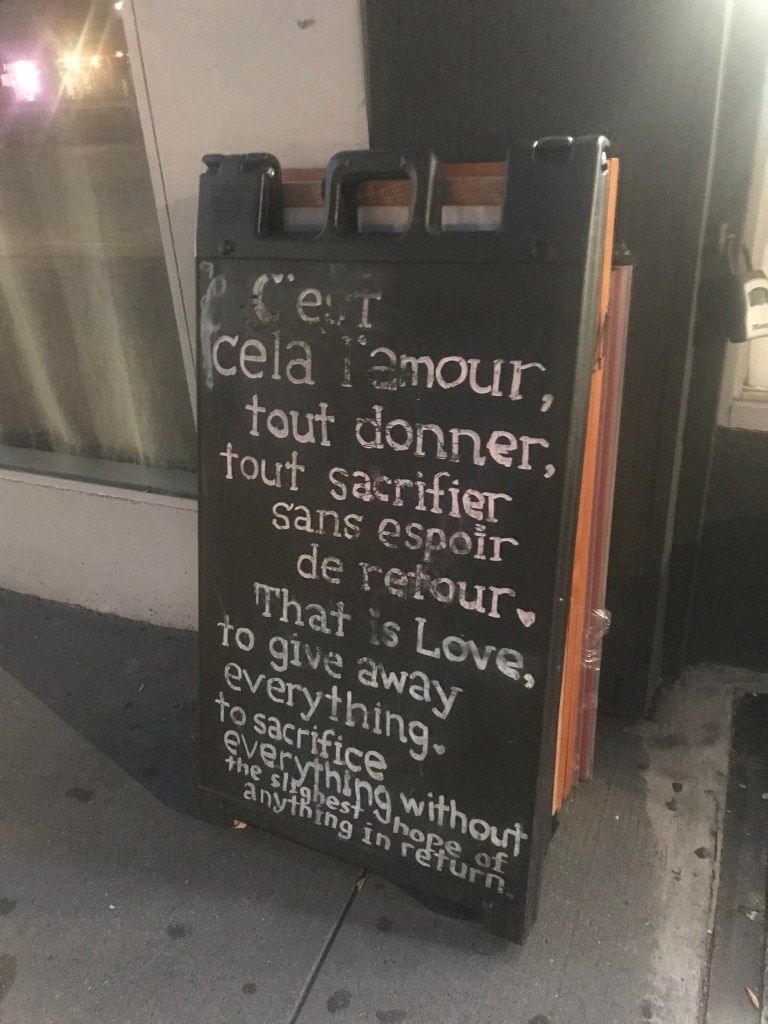 C'est
cela l'amour,
tout donner,
tout sacrifier
sans espoir
de retour.
That is Love,
to give away
everything.
to sacrifice
everything without
the slighest hope of
anything in return.